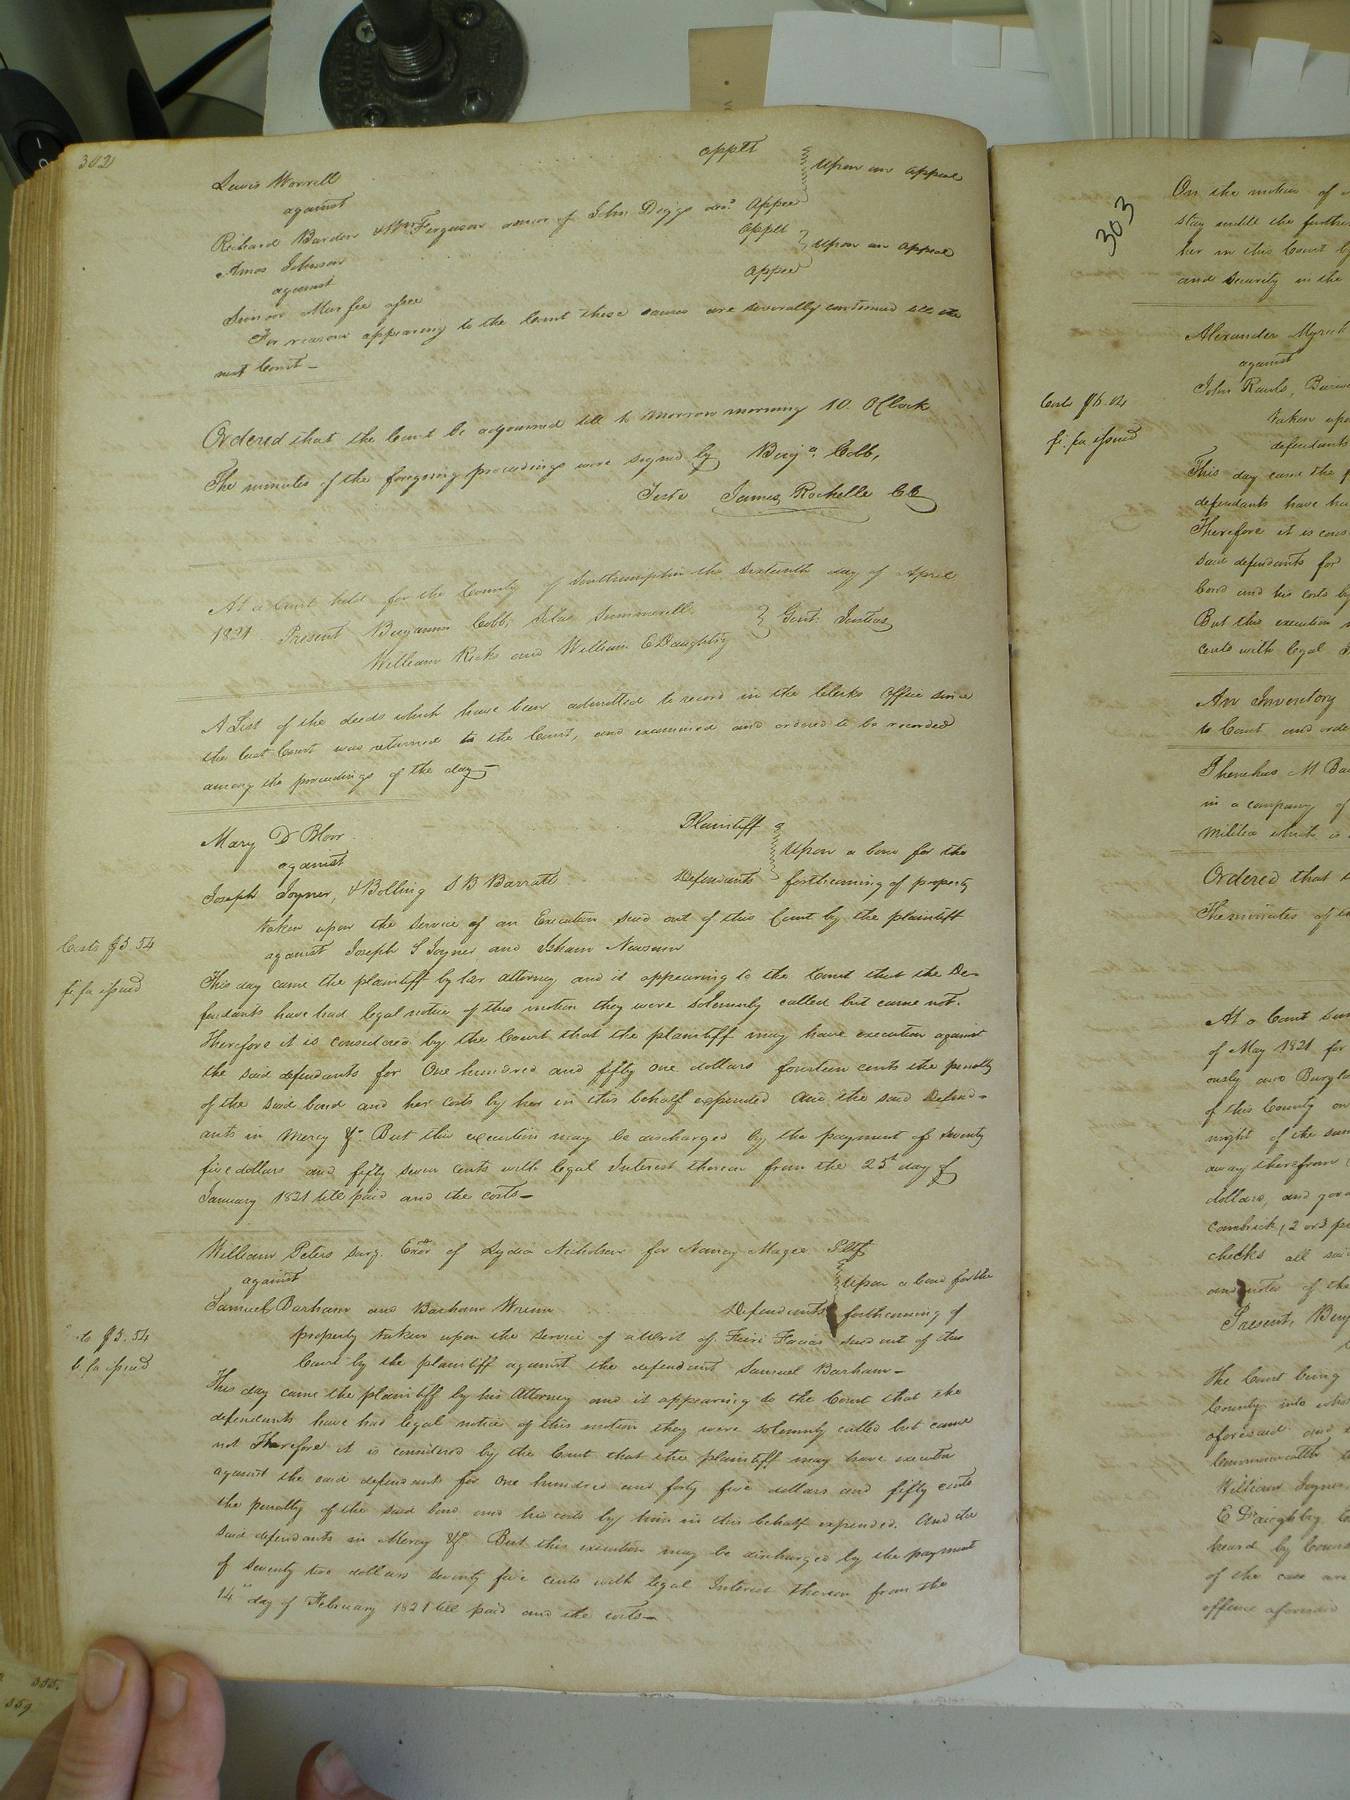 302
applt
Lewis Worrell
against
Upon an appeal
Richard Barden & Wm Ferguson admr of John Doggs decd appee
Amos Johnson
applt
against
Upon an appeal
appee
For reasons appearing to the Court these causes are severally continued till the
next Court
Ordered that the Court be adjourned till to Morrow morning 10 O Clock
The minutes of the foregoing proceedings were signed by Benja Cobb,
Teste James Rochelle CC
At a Court held for the County of Southampton the sixteenth day of April
1821 Present Benjamin Cobb, Silas Summerell
William Ricks and William E Daughtry
Gent: Justices
A List of the deeds which have been admitted to record in the Clerks Office since
the last Court was returned to the Court, and examined and ordered to be recorded
among the proceedings of the day
Mary D Blow
Plaintiff
against
Upon a bond for the
Joseph Joyner, & Bolling S B Barratt
Defendants forthcoming of property
taken upon the service of an Execution sued out of this Court by the plaintiff
against Joseph S Joyner and Isham Newsum
Costs $5.54
fi. fa issued
This day came the plaintiff by her attorney and it appearing to the Court that the De-
fendants have had legal notice of this motion they were solemnly called but came not.
Therefore it is considered by the Court that the plaintiff may have execution against
the said defendants for One hundred and fifty one dollars fourteen cents the penalty
of the said bond and her costs by her in this behalf expended and the said Defend-
ants in Mercy &c. But this execution may be discharged by the payment of seventy
five dollars and fifty seven cents with legal Interest thereon from the 25t day of
January 1821 till paid and the costs-
William Peters surg. Exor of Lydia Nicholson for Nancy Magee Pltf
against
Upon a bond for the
Samuel Barham and Barham Wrenn
Defendants forthcoming of
property taken upon the service of a Writ of Fieri Facias sued out of this
Court by the plaintiff against the defendant Samuel Barham-
$5.54
fa issued
This day came the plaintiff by his Attorney and it appearing to the Court that the
defendants have had legal notice of this motion they were solemnly called but came
not Therefore it is considered by the Court that the plaintiff may have executn
against the said defendants for One hundred and forty five dollars and fifty cents
the penalty of the said bond and his costs by him in this behalf expended. And the
said defendants in Mercy &c But this execution may be discharged by the payment
of seventy two dollars seventy five cents with legal Interest thereon from the
14" day of February 1821 till paid and the costs-
303
On the motion of
stay untill the further
her in this Court by
and security in the
Alexander Myrick
against
John Rawls,
taken upon
defendants
Costs $6.04
fi. fa issued
This day came the
defendants have had
Therefore it is cons
said defendants for
bond and his costs by
But this execution
cents with legal
An Inventory
to Court and orde
in a company of
Militia which is
Ordered that
The minutes of the
At a Court
of May 1821 for
ously and Burgla
of this County on
night of the
away therefrom
dollars, and
cambrick, 2 or 3
checks all
and notes of the
Present, Benj
The Court being
County into
aforesaid and
Commonwealth
William Joyner
E Daughtry
heard by
of the case are
offence aforesaid
355.
359